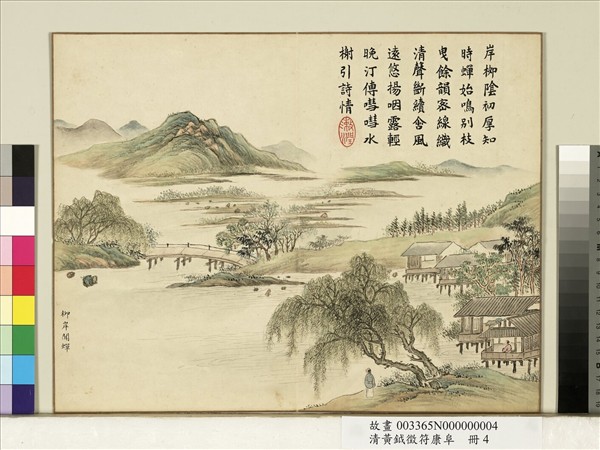 岸柳陰初厚知
時蟬始鳴別枝
曳餘韻密線織
清聲斷續含風
遠悠揚咽露輕
晚汀傳嘒嘒水
榭引詩情
柳岸聞蟬
故畫 003365N000000004
清黃鉞徵符康阜 冊 4